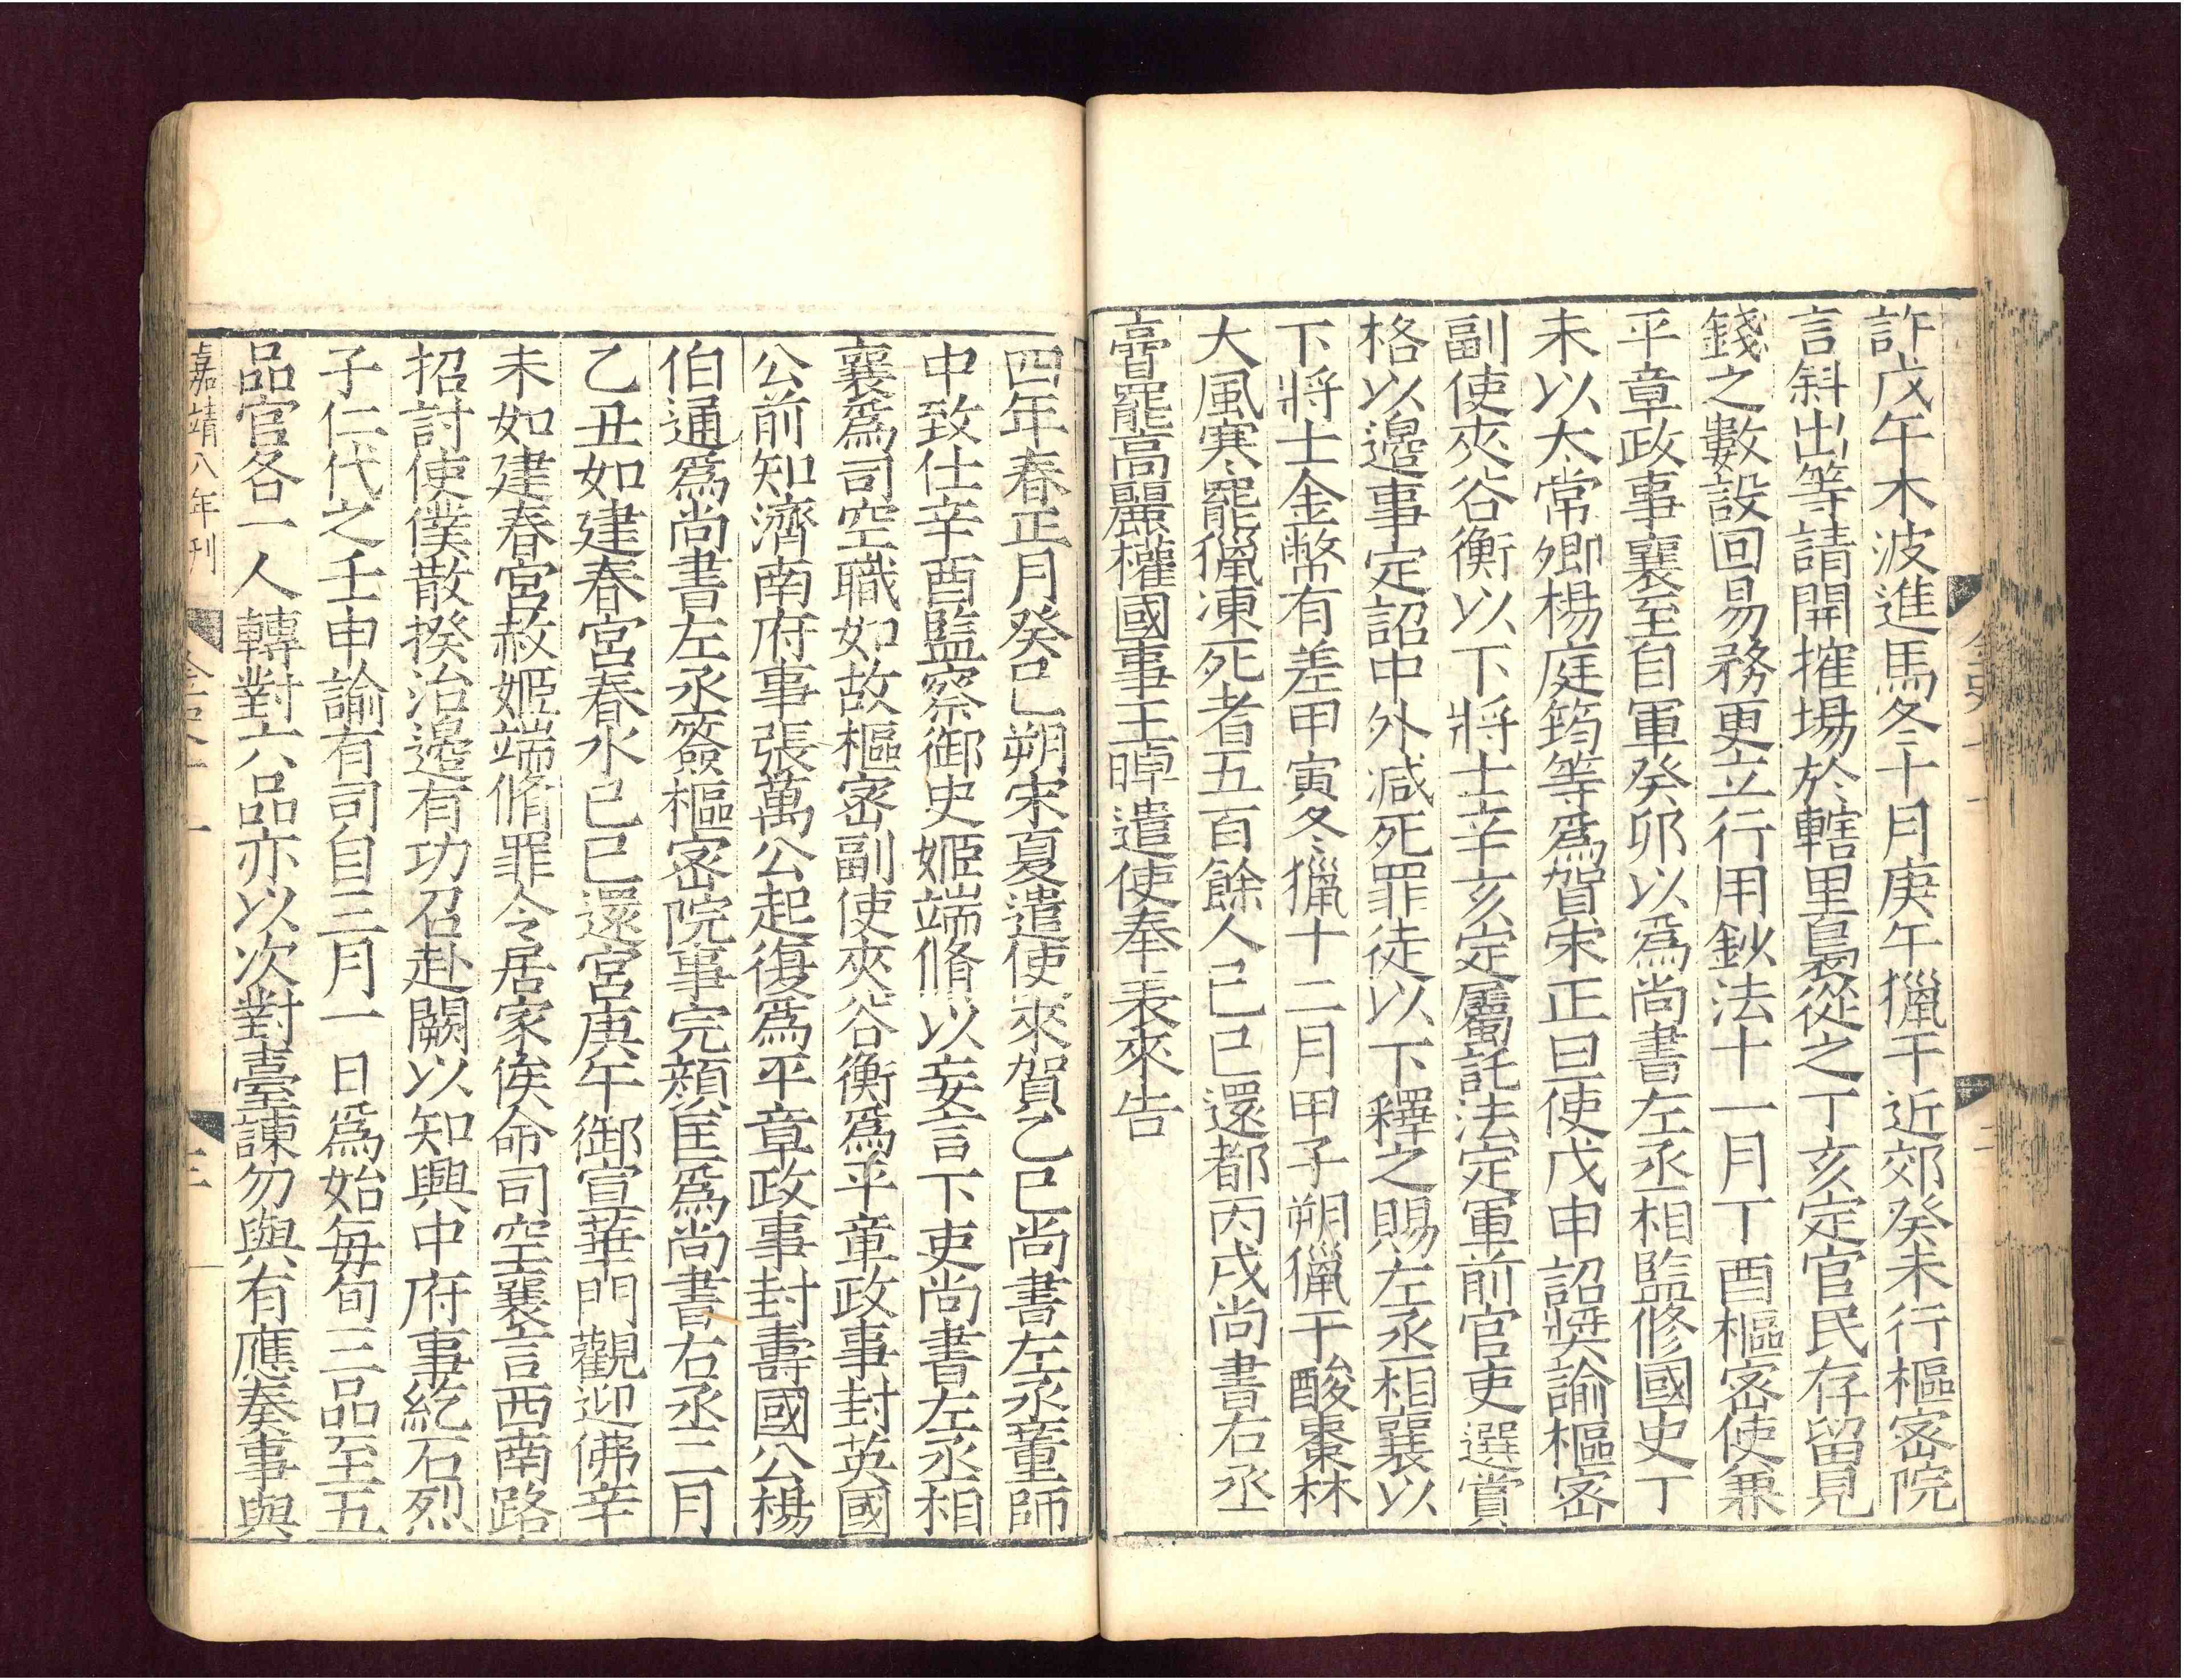 許戊午木波進馬冬十月庚午獵于近郊癸未行樞密院
言斜出等請開搉場於轄里裊從之丁亥定官民存留見
錢之數設回易務更立行用鈔法十一月丁酉樞密使兼
平章政事襄至自軍癸卯以爲尚書左丞相監修國史丁
未以太常卿楊庭筠等爲賀宋正旦使戊申詔奬諭樞密
副使夾谷衡以下將士辛亥定屬託法定軍前官吏選賞
格以邊事定詔中外減死罪徒以下釋之賜左丞相襄以
下將士金幣有差甲寅冬獵十二月甲子朔獵于酸棗林
大風寒罷獵凍死者五百餘人己巳還都丙戌尚書右丞
膏罷高麗權國事王晫遣使奉表來告
四年春正月癸巳朔宋夏遣使來賀乙巳尚書左丞董師
中致仕辛酉監察御史姬端脩以妄言下吏尚書左丞相
襄爲司空職如故樞密副使夾谷衡爲平章政事封英國
公前知濟南府事張萬公起復爲平章政事封壽國公楊
伯通爲尚書左丞簽樞密院事完顏匡爲尚書右丞二月
乙丑如建春宮春水己巳還宮庚午御宣華門觀迎佛辛
未如建春宮赦姬端脩罪令居家俟命司空襄言西南路
招討使僕散揆治邊有功召赴闕以知興中府事紇石烈
子仁代之壬申諭有司自三月一日爲始每旬三品至五
品官各一人轉對六品亦以次對臺諫勿與有應奏事與
嘉靖八年刊
三